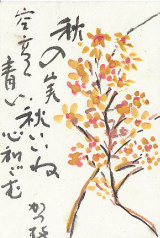 秋の実
秋いいね
空高く
青い
心和む